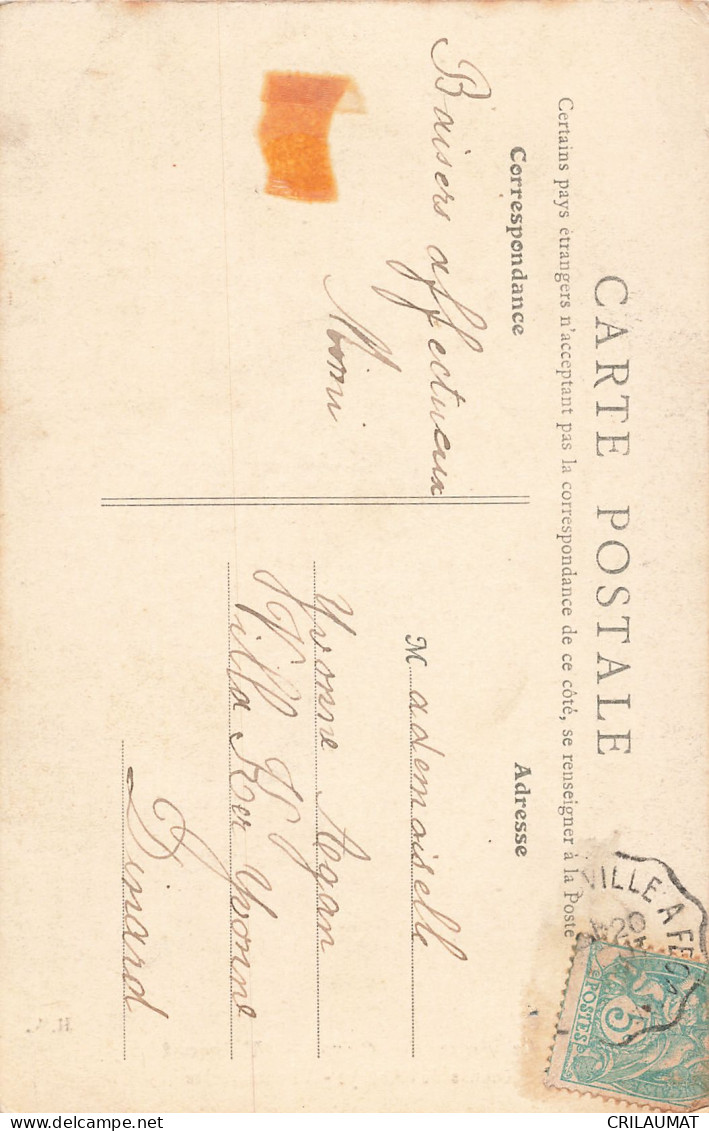 CARTE POSTALE
Certains pays étrangers n'acceptant pas la correspondance de ce côté, se renseigner à la Poste
Correspondance
Adresse
Baisers affectueux
Mimi
Mademoiselle
Yvonne Agan
Villa Ker Yvonne
Dinard
VILLE A FE
5
POSTES
CRILAUMAT